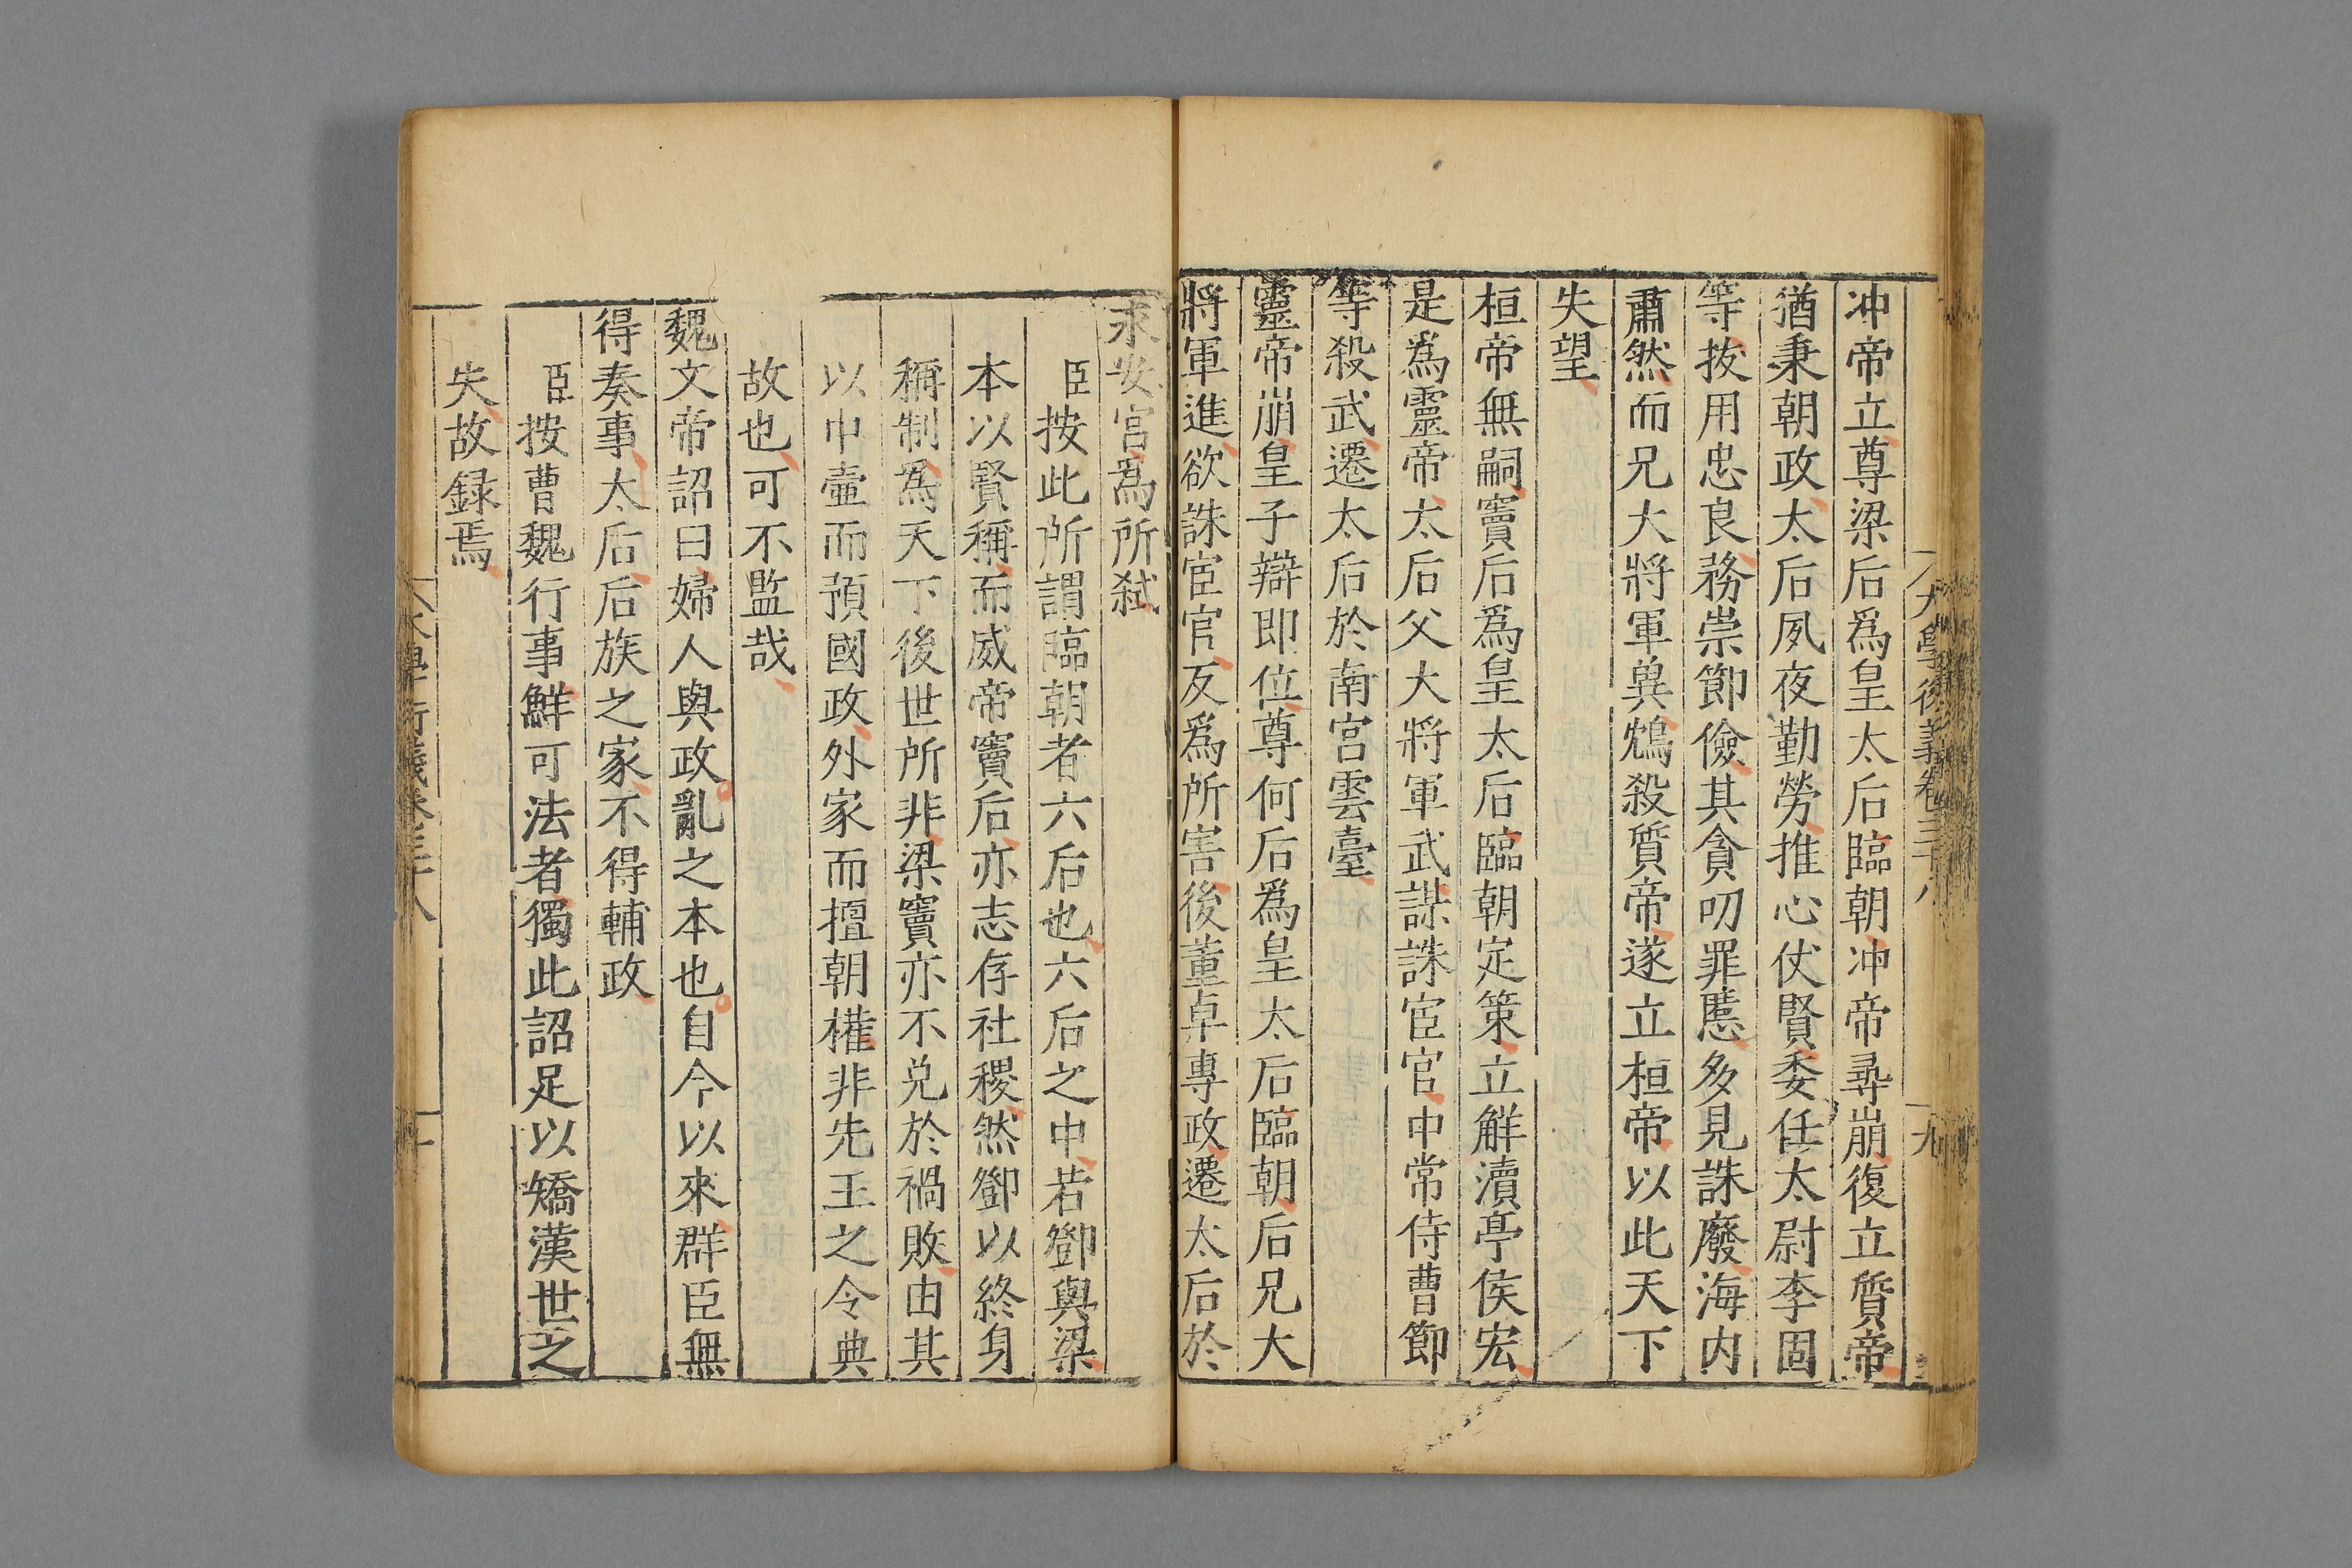 大學衍義卷三十八
九
冲帝立尊梁后爲皇太后臨朝冲帝尋崩復立質帝
猶秉朝政太后夙夜勤勞推心仗賢委任太尉李固
等拔用忠良務崇節儉其貪叨罪慝多見誅廢海内
肅然而兄大將軍兾鴆殺質帝遂立桓帝以此天下
失望
桓帝無嗣竇后爲皇太后臨朝定策立解瀆亭侯宏
是爲靈帝太后父大將軍武謀誅宦官中常侍曹節
等殺武遷太后於南宫雲臺
靈帝崩皇子辯即位尊何后爲皇太后臨朝后兄大
將軍進欲誅宦官反爲所害後董卓專政遷太后於
永安宫爲所弑
臣按此所謂臨朝者六后也六后之中若鄧與梁
本以賢稱而威帝竇后亦志存社稷然鄧以終身
稱制爲天下後世所非梁竇亦不免於禍敗由其
以中壼而預國政外家而擅朝權非先王之令典
故也可不監哉
魏文帝詔曰婦人與政亂之本也自今以來群臣無
得奏事太后后族之家不得輔政
臣按曹魏行事鮮可法者獨此詔足以矯漢世之
失故録焉
大學衍義卷三十八
十